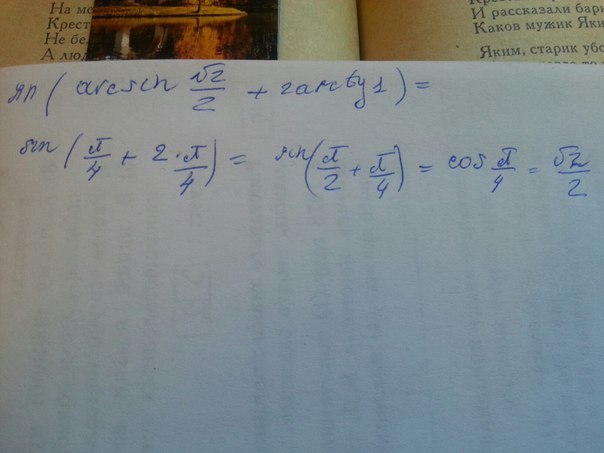 На ме
Крест
Не бе
А люд
И рассказали бари
Каков мужик Яки
Яким, старик убо
sin ( arcsin √2/2 + 2arctg 1 ) =
sin ( π/4 + 2 · π/4 ) = sin ( π/2 + π/4 ) = cos π/4 = √2/2